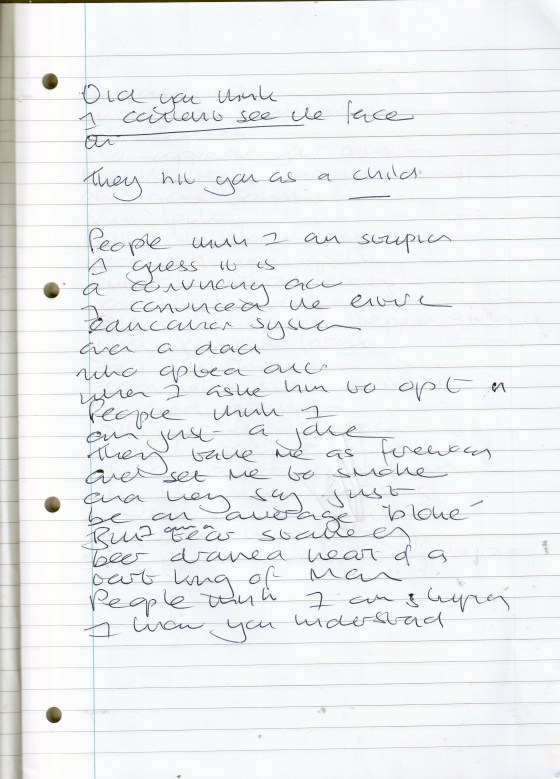 Did you think
I couldn't see the face
or
They hit you as a child
People think I am stupid
I guess it is
a convincing act
I convinced the entire
Education system
and a dad
who opted out
when I aske him to opt n
People think I
am just a joke
They take me as
and set me to smoke
and they say just
be an average 'bloke'
But I am a tear
beer drained heart of a
king of Man
People think I am stupid
I know you understad